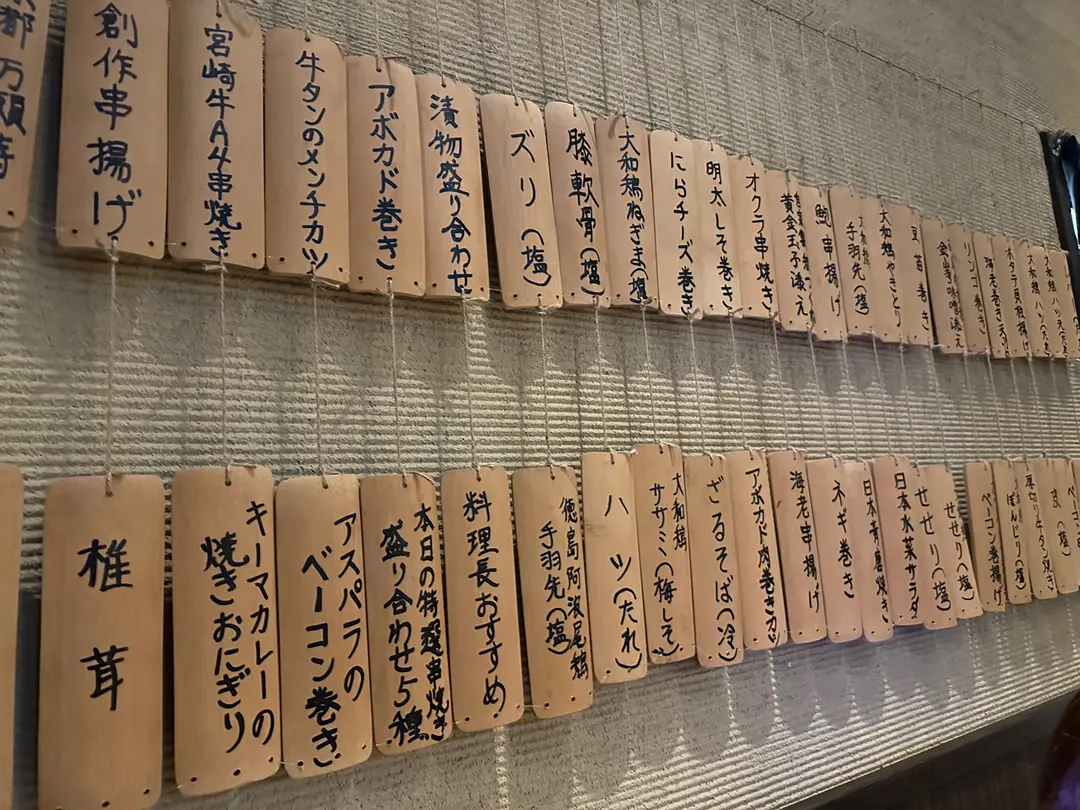 創作串揚げ
宮崎牛A4串焼き
牛タンのメンチカツ
アボカド巻き
漬物盛り合わせ
ズリ(塩)
膝軟骨(塩)
大和鶏ねぎま(塩)
にらチーズ巻き
明太しそ巻き
オクラ串焼き
黄金玉子添え
串揚げ
大和鶏
手羽先(塩)
大和鶏やきとり
豆苗巻き
金山寺味噌添え
リンゴ巻き
海老巻き
大和鶏ハツ(たれ)
椎茸
キーマカレーの
焼きおにぎり
アスパラの
ベーコン巻き
本日の特選串焼き
盛り合わせ5種
料理長おすすめ
徳島阿波尾鶏
手羽先(塩)
ハツ(たれ)
大和鶏
ササミ(梅しそ)
ざるそば(冷)
アボカド肉巻きカツ
海老串揚げ
ネギ巻き
日本水菜サラダ
せせり(塩)
せせり(塩)
ベーコン巻揚げ
ぼんじり(塩)
厚切り牛タン焼き
皮(塩)